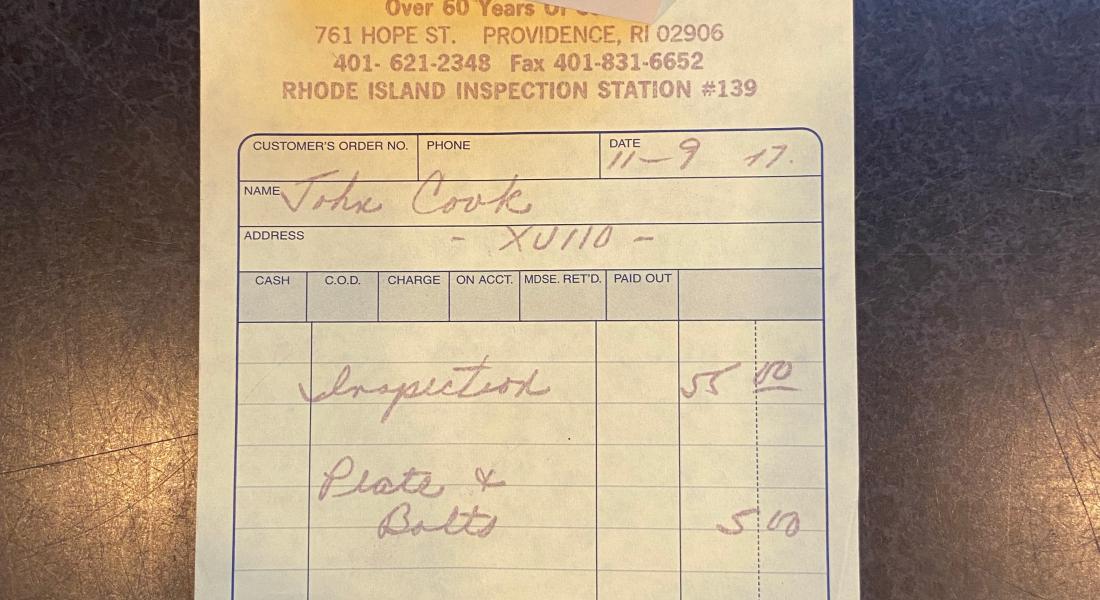 Over 60 Years Of
761 HOPE ST. PROVIDENCE, RI 02906
401- 621-2348 Fax 401-831-6652
RHODE ISLAND INSPECTION STATION #139
CUSTOMER'S ORDER NO. PHONE DATE 11-9 17.
NAME John Cook
ADDRESS - XU110 -
CASH C.O.D. CHARGE ON ACCT. MDSE. RET'D. PAID OUT
Inspection 55 00
Plate &
Bolts 5 00